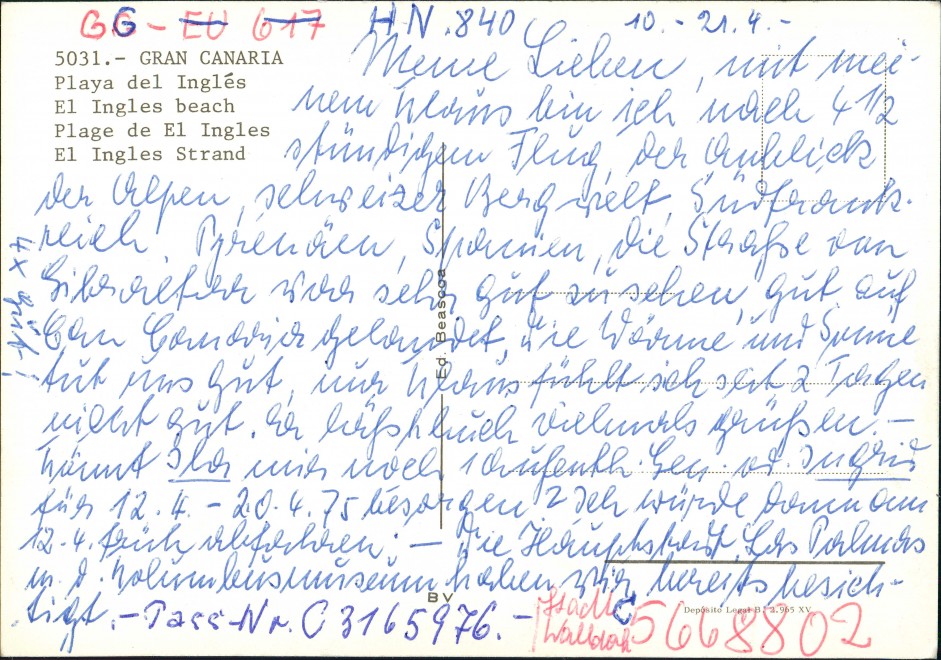 GG - EU 617 H.N. 840 10. - 21.4. -
5031.- GRAN CANARIA
Playa del Inglés
El Ingles beach
Plage de El Ingles
El Ingles Strand
Meine Lieben, mit mei-
nem Klaus bin ich nach 4 1/2
stündigem Flug, der Anblick
der Alpen, schweizer Bergwelt, Südfrank-
reich, Pyrenäen, Spanien, die Straße von
Gibraltar war sehr gut zu sehen, gut auf
Gran Canaria gelandet, die Wärme und Sonne
tut uns gut, nur Klaus fühlt sich seit 2 Tagen
nicht gut. Er läßt Euch vielmals grüßen. -
Könnt Ihr mir noch 1 Aufenth. Gen. od. Ingrid
für 12.4. - 20.4.75 besorgen? Ich würde dann am
12.4. früh abfahren. - Die Hauptstadt Las Palmas
m. d. Kolumbusmuseum haben wir bereits besich-
tigt. - Pass-Nr. C 3165976. -
4 x
Ed. Beascoa
BV
Depósito Legal B. 2.965 XV
Stadt
C 5668802